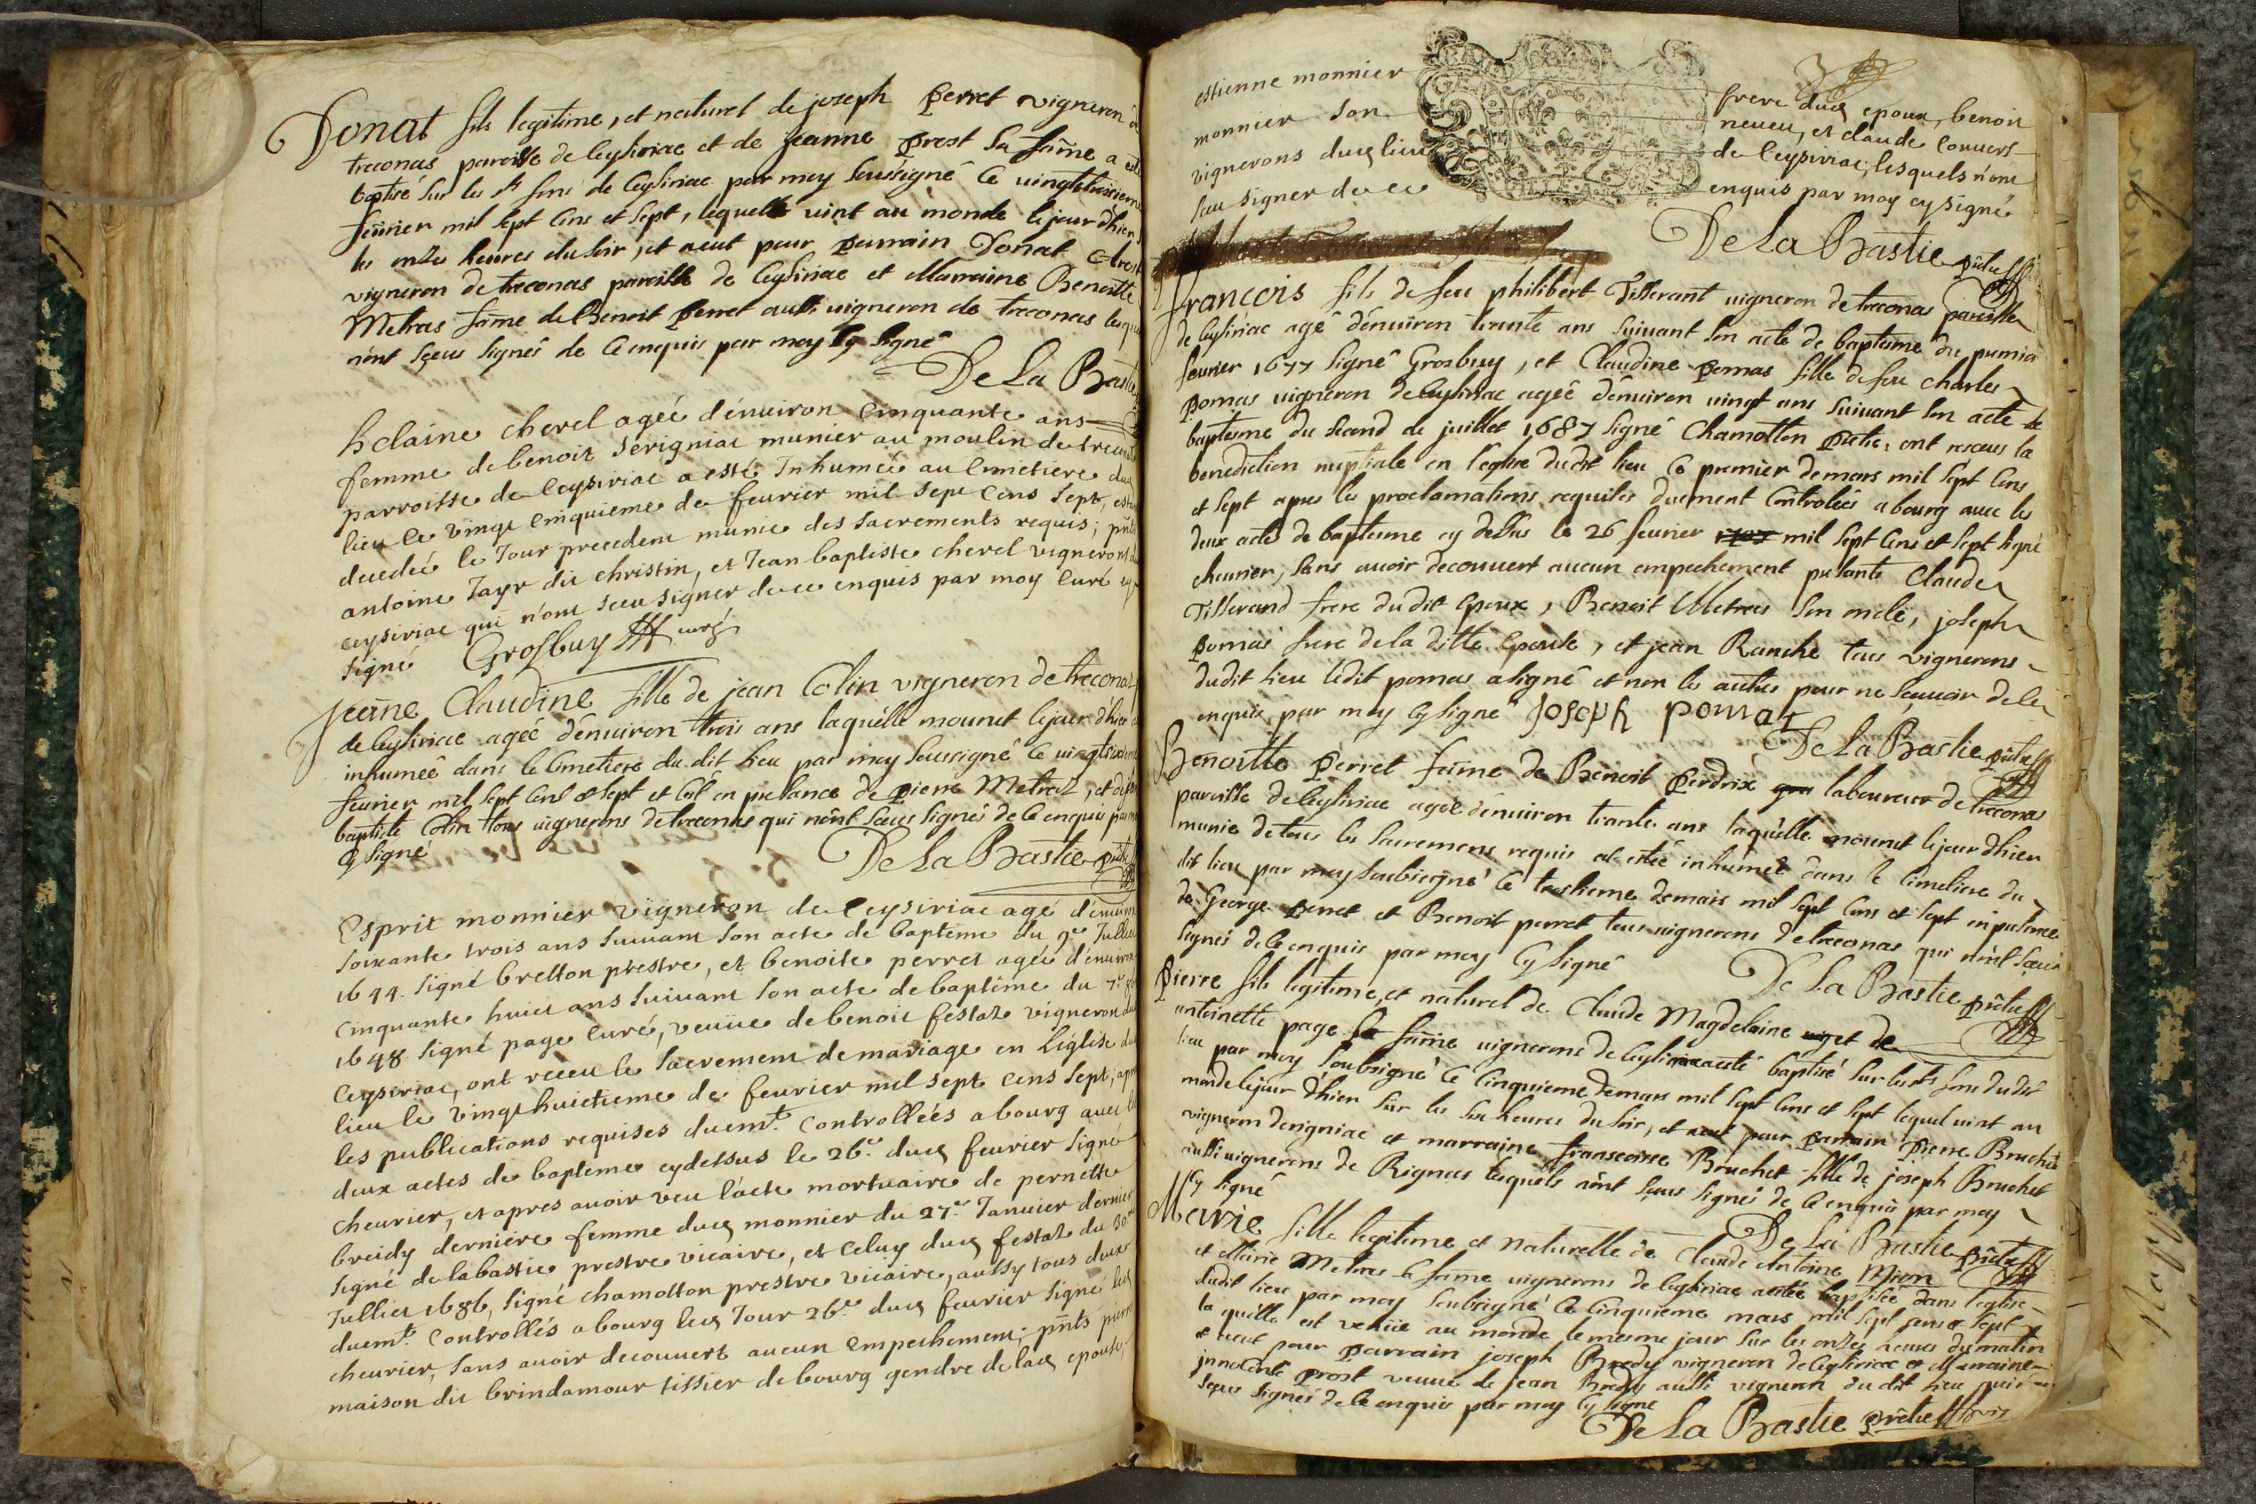 Donat fils legitime, et naturel de joseph perret vigneron de
treconas paroisse de Ceysiriac et de jeanne prost sa fame a esté
baptisé sur les st fons de Ceysiriac par moy sousigné ce vingttroisieme
feuurier mil sept cens et sept, lequel vint au monde le jour dhier
les onze heures du soir, et aeut pour parrain Donat
vigneron de treconas paroisse de Ceysiriac et Marraine Benoitte
Metras fame de Benoit perret aussi vigneron de treconas lesquels
nont sçeus signés de ce enquis par moy cy signé
De La Bastie
helaine cherel agéé d'énuiron cinquante ans
femme de benoit serigniat munier au moulin de treconas
parroisse de Ceysiriac a esté Inhuméé au cimetiere dud
lieu le vingt cinquieme de feurier mil sept cens sept, estant
decedéé le Jour precedent munie des sacrements requis; pnts
antoine Jayr dit christin, et Jean baptiste cherel vignerons
ceysiriac qui n'ont sceu signer de ce enquis par moy curé cy
signé Grosbuy curé
Jeane Claudine fille de jean Colin vigneron de treconas
de Ceysiriac agéé dénuiron trois ans laquélle mourut le jour d'hier
inhumeé dans le Cimetiere du dit lieu par moy soussigné ce vingtsixieme
feurier mil sept cens et sept et cést en presance de pierre Metraz, et
baptiste Colin tous vignerons de treconas qui nónt sceus signés de ce enquis par moy
cy signé
De La Bastie prêtre
Esprit monnier vigneron de Ceysiriac agé d'enuiron
soixante trois ans suiuant son acte de baptéme du 9e Jullet
1644. signé bretton prestre, et benoite perret agéé d'énuiron
cinquante huict ans suiuant son acte de baptême du
1648 signé page curé, veuue de benoit festaz vigneron de
Ceysiriac, ont receu le sacrement de mariage en L'église dud
lieu le vingt huictieme de feurier mil sept cens sept, apres
les publications requises duemt. controlléés a bourg auec les
deux actes de bapteme cydessus le 26e. dud feurier signé
cheurier, et apres auoir veu l'acte mortuaire de pernette
breidy derniere femme dud monnier du 27e. Januier dernier
signé delabastie prestre vicaire, et celuy dud festaz du 30e
Jullier 1686, signé chamotton prestre vicaire, aussy tous deux
duemt. Controllés a bourg led Jour 26e dud feurier signé led
cheurier, sans auoir decouuert aucun empechement; pnts pierre
maison dit brindamour tissier de bourg gendre de lad epouse,
estienne monnier frere dud epoux, benoit
monnier son neueu, et claude conuers
vignerons dud lieu de Ceysiriac, lesquels n'ont
sceu signer de ce enquis par moy cy signé
De La Bastie prêtre
françois fils de feu philibert Tisserant vigneron de treconas paroisse
de Ceysiriac agé dénuiron trante ans suiuant son acte de bapteme du pumier
feurier 1677 signé Grosbuy, et Claudine pomas fille de feu charles
pomas vigneron de Ceysiriac agéé dénuiron vingt ans suiuant son acte de
baptesme du second de juillet 1687 signé Chamotton prêtre, ont receus la
benediction nuptiale en l'eglise dudit lieu ce premier de mars mil sept cens
et sept apres les proclamations requises duement Controleés a bourg auec les
deux actes de bapteme cy dessus le 26 feurier mil sept cens et sept signé
cheurier, sans auoir decouuert aucun empechement presants Claude
Tisserand frere dudit epoux, Benoit Metras son oncle, joseph
pomas frere de la ditte epouse, et jean Ranche tous vignerons
dudit lieu ledit pomas a signé et non les autres pour ne sçauoir de ce
enquis par moy cy signé Joseph pomat
De La Bastie prêtre
Benoitte perret fame de Benoit perdrix laboureur de treconas
paroisse de Ceysiriac ageé dénuiron trante ans laquélle mourut le jour dhier
munie de tous les sacremens requis et estéé inhuméé dans le cimetiere du
dit lieu par moy soubsigné ce troisieme de mars mil sept cens et sept en presance
de George perret et Benoit perret tous vignerons de treconas qui nónt sceus
signés de ce enquis par moy cy signé
De La Bastie prêtre
pierre fils legitime, et naturel de Claude Magdelaine et de
antoinette page sa fame vignerons de Ceysiriac a esté baptisé sur les sts fons dudit
lieu par moy soubsigné ce cinquieme de mars mil sept cens et sept lequel vint au
monde le jour dhier sur les six heures du soir, et aeut pour parrain pierre Bruchet
vigneron de rigniac et marraine franscoise Bruchet fille de joseph Bruchet
aussi vignerons de Rignac lesquels nónt sceus signés de ce enquis par moy
cy signé
De La Bastie prêtre
Marie fille legitime et naturelle de Claude Antoine Mion
et Marie Metras sa fame vignerons de Ceysiriac a esté baptiséé dans leglise
dudit lieu par moy soubsigné ce cinquieme mars mil sept cens et sept
la quelle est venüe au monde le mesme jour sur les onze heures du matin
et aeut pour parrain joseph Bredy vigneron de Ceysiriac et Marraine
jnnocente prost veuue de jean Bredy aussi vigneron du dit lieu qui nont
sceus signés de ce enquis par moy cy signé
De La Bastie prêtre